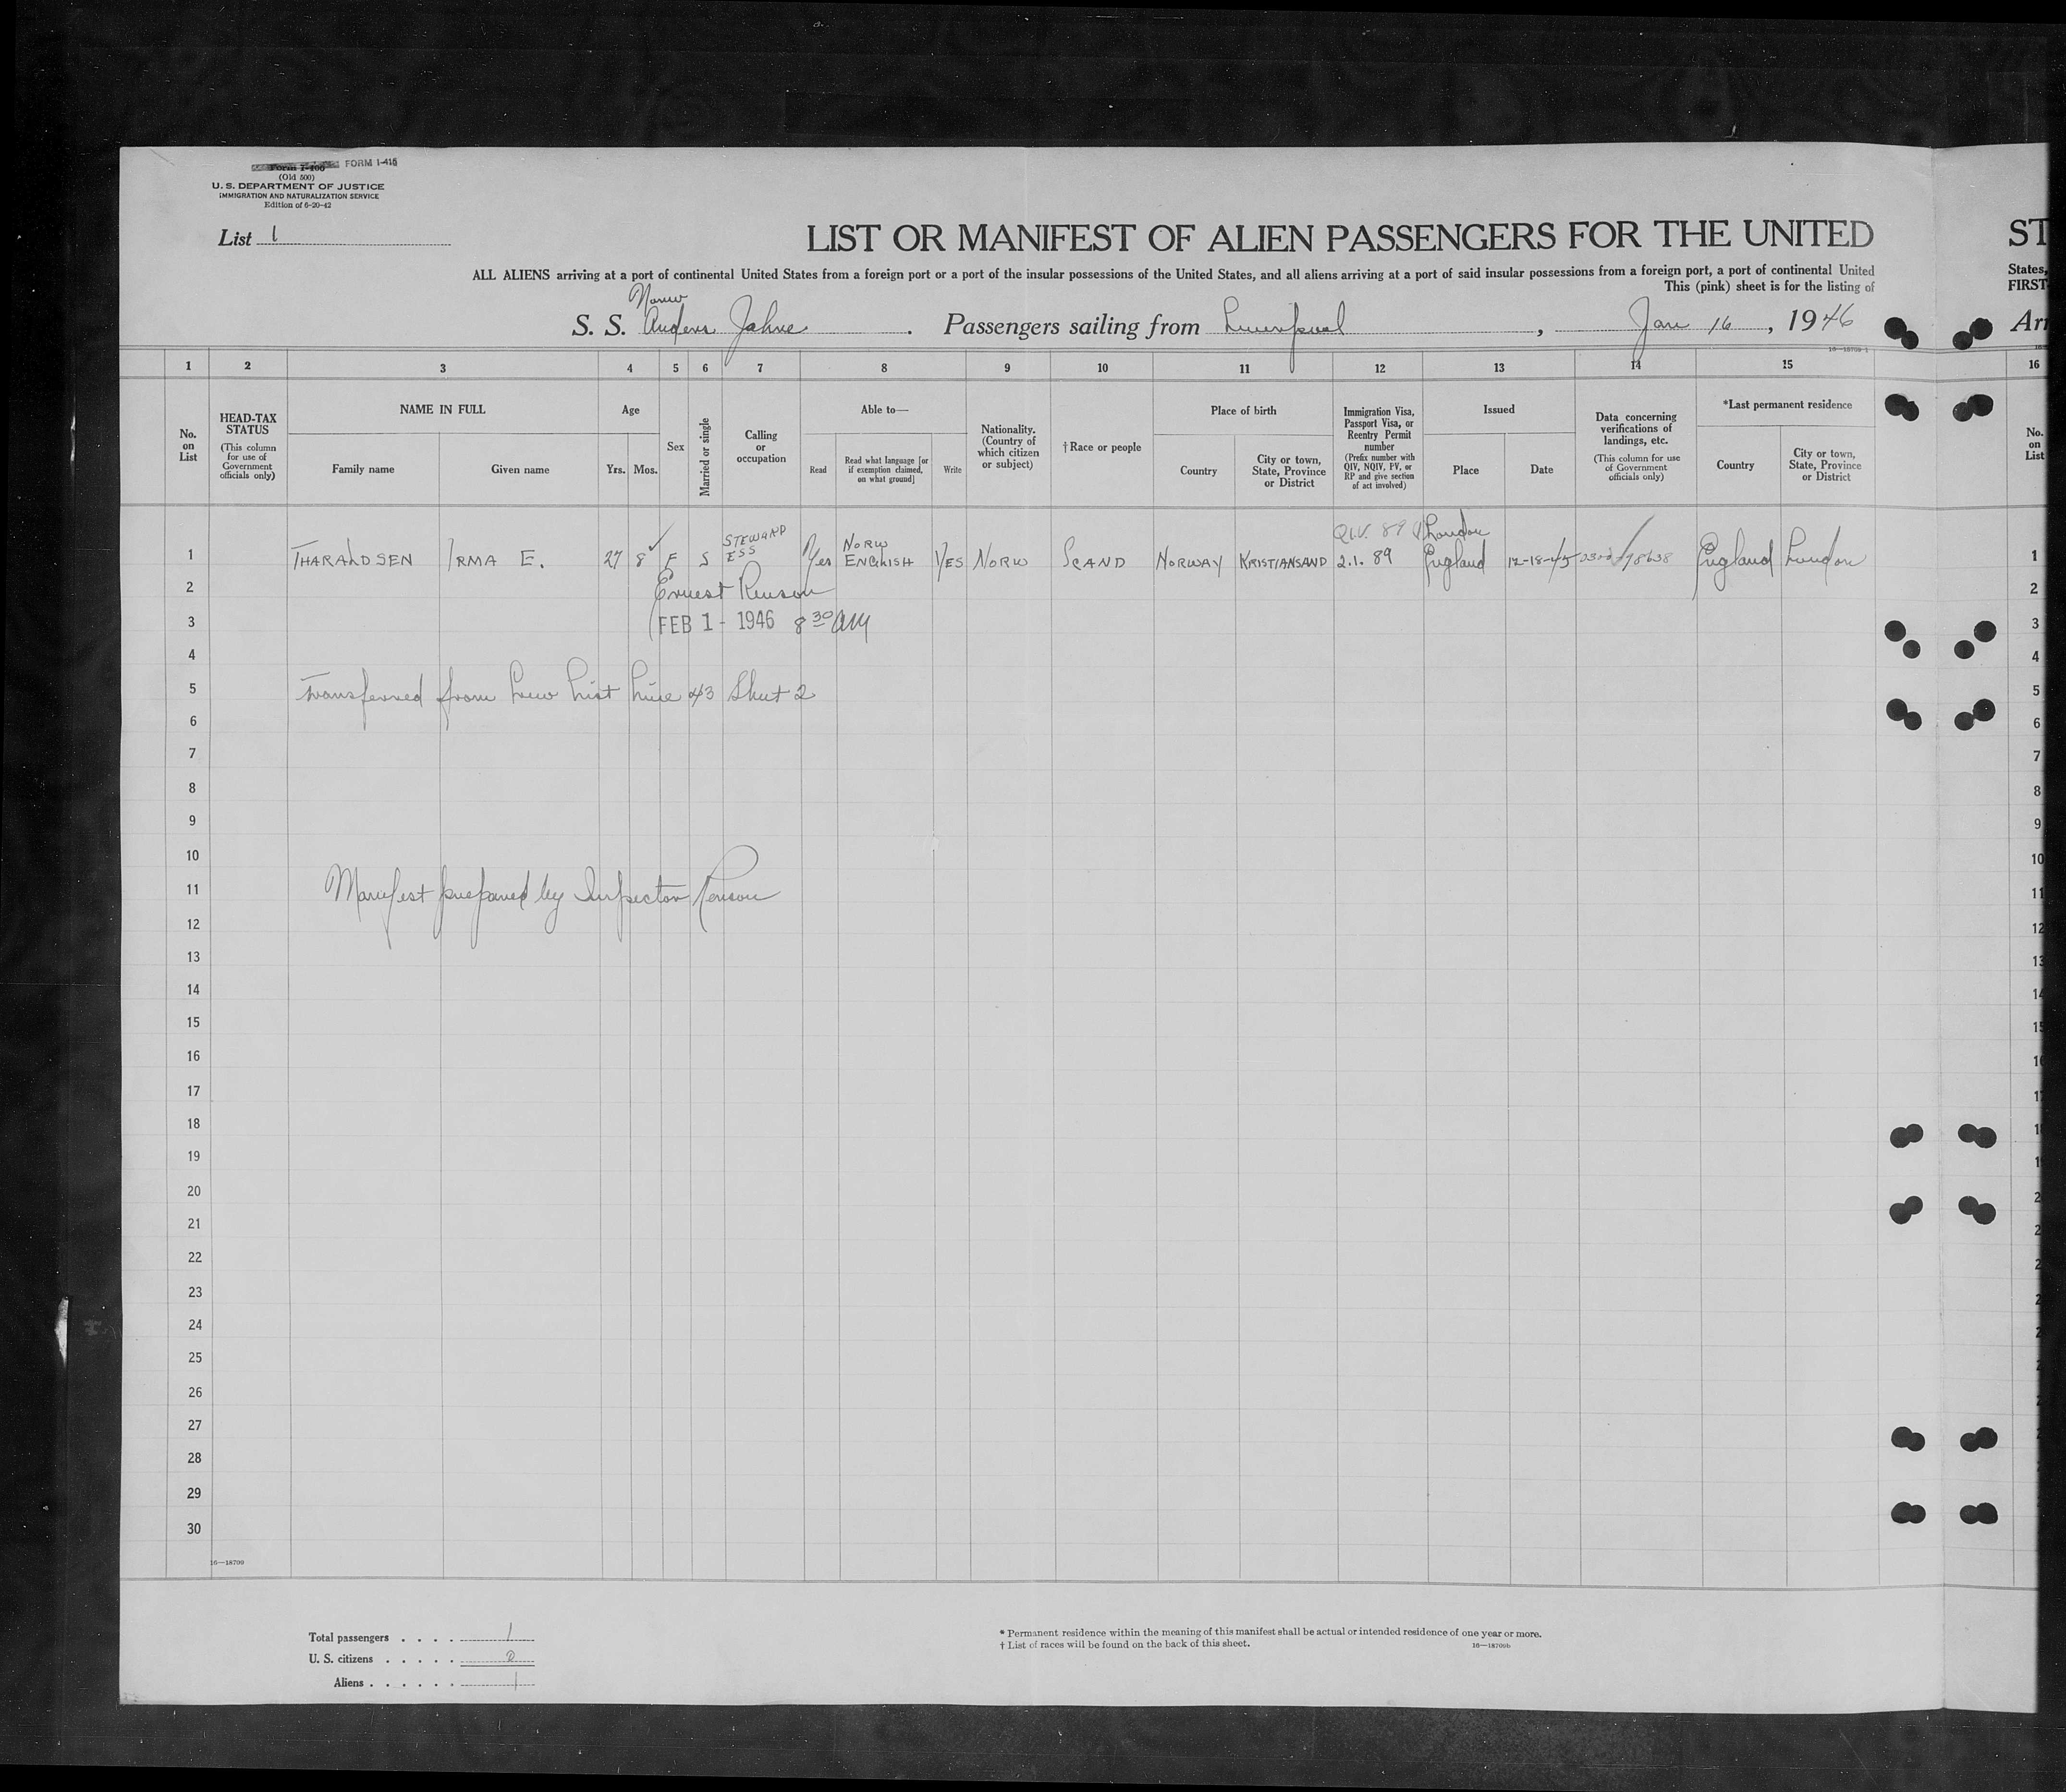 Form I-400 FORM I-415
(Old 500)
U. S. DEPARTMENT OF JUSTICE
IMMIGRATION AND NATURALIZATION SERVICE
Edition of 6-20-42
List 1
LIST OR MANIFEST OF ALIEN PASSENGERS FOR THE UNITED
ST
ALL ALIENS arriving at a port of continental United States from a foreign port or a port of the insular possessions of the United States, and all aliens arriving at a port of said insular possessions from a foreign port, a port of continental United
States,
This (pink) sheet is for the listing of
FIRST
Norw
S. S. Anders Jahre. Passengers sailing from Liverpool, Jan 16, 1946
Arr
16—18709-1
1 2 3 4 5 6 7 8 9 10 11 12 13 14 15 16
No. on List
HEAD-TAX STATUS
(This column for use of Government officials only)
NAME IN FULL
Family name Given name
Age
Yrs. Mos.
Sex
Married or single
Calling or occupation
Able to—
Read
Read what language [or if exemption claimed, on what ground]
Write
Nationality. (Country of which citizen or subject)
†Race or people
Place of birth
Country
City or town, State, Province or District
Immigration Visa, Passport Visa, or Reentry Permit number
(Prefix number with QIV, NQIV, PV, or RP and give section of act involved)
Issued
Place Date
Data concerning verifications of landings, etc.
(This column for use of Government officials only)
*Last permanent residence
Country
City or town, State, Province or District
No. on List
1 THARALDSEN IRMA E. 27 8 F S STEWARDESS Yes NORW ENGLISH YES NORW SCAND NORWAY KRISTIANSAND Q.I.V. 89 2.1. 89 London England 12-18-45 England London 1
2 Ernest Renson 2
3 FEB 1 - 1946 8 30 AM 3
4 4
5 Transferred from Crew List Line 43 Sheet 2 5
6 6
7 7
8 8
9 9
10 10
11 Manifest prepared by Inspector Renson 11
12 12
13 13
14 14
15 15
16 16
17
18
19
20
21
22
23
24
25
26
27
28
29
30
16—18709
Total passengers . . . . 1
U. S. citizens . . . . . 0
Aliens . . . . . . 1
* Permanent residence within the meaning of this manifest shall be actual or intended residence of one year or more.
† List of races will be found on the back of this sheet.
16—18709b